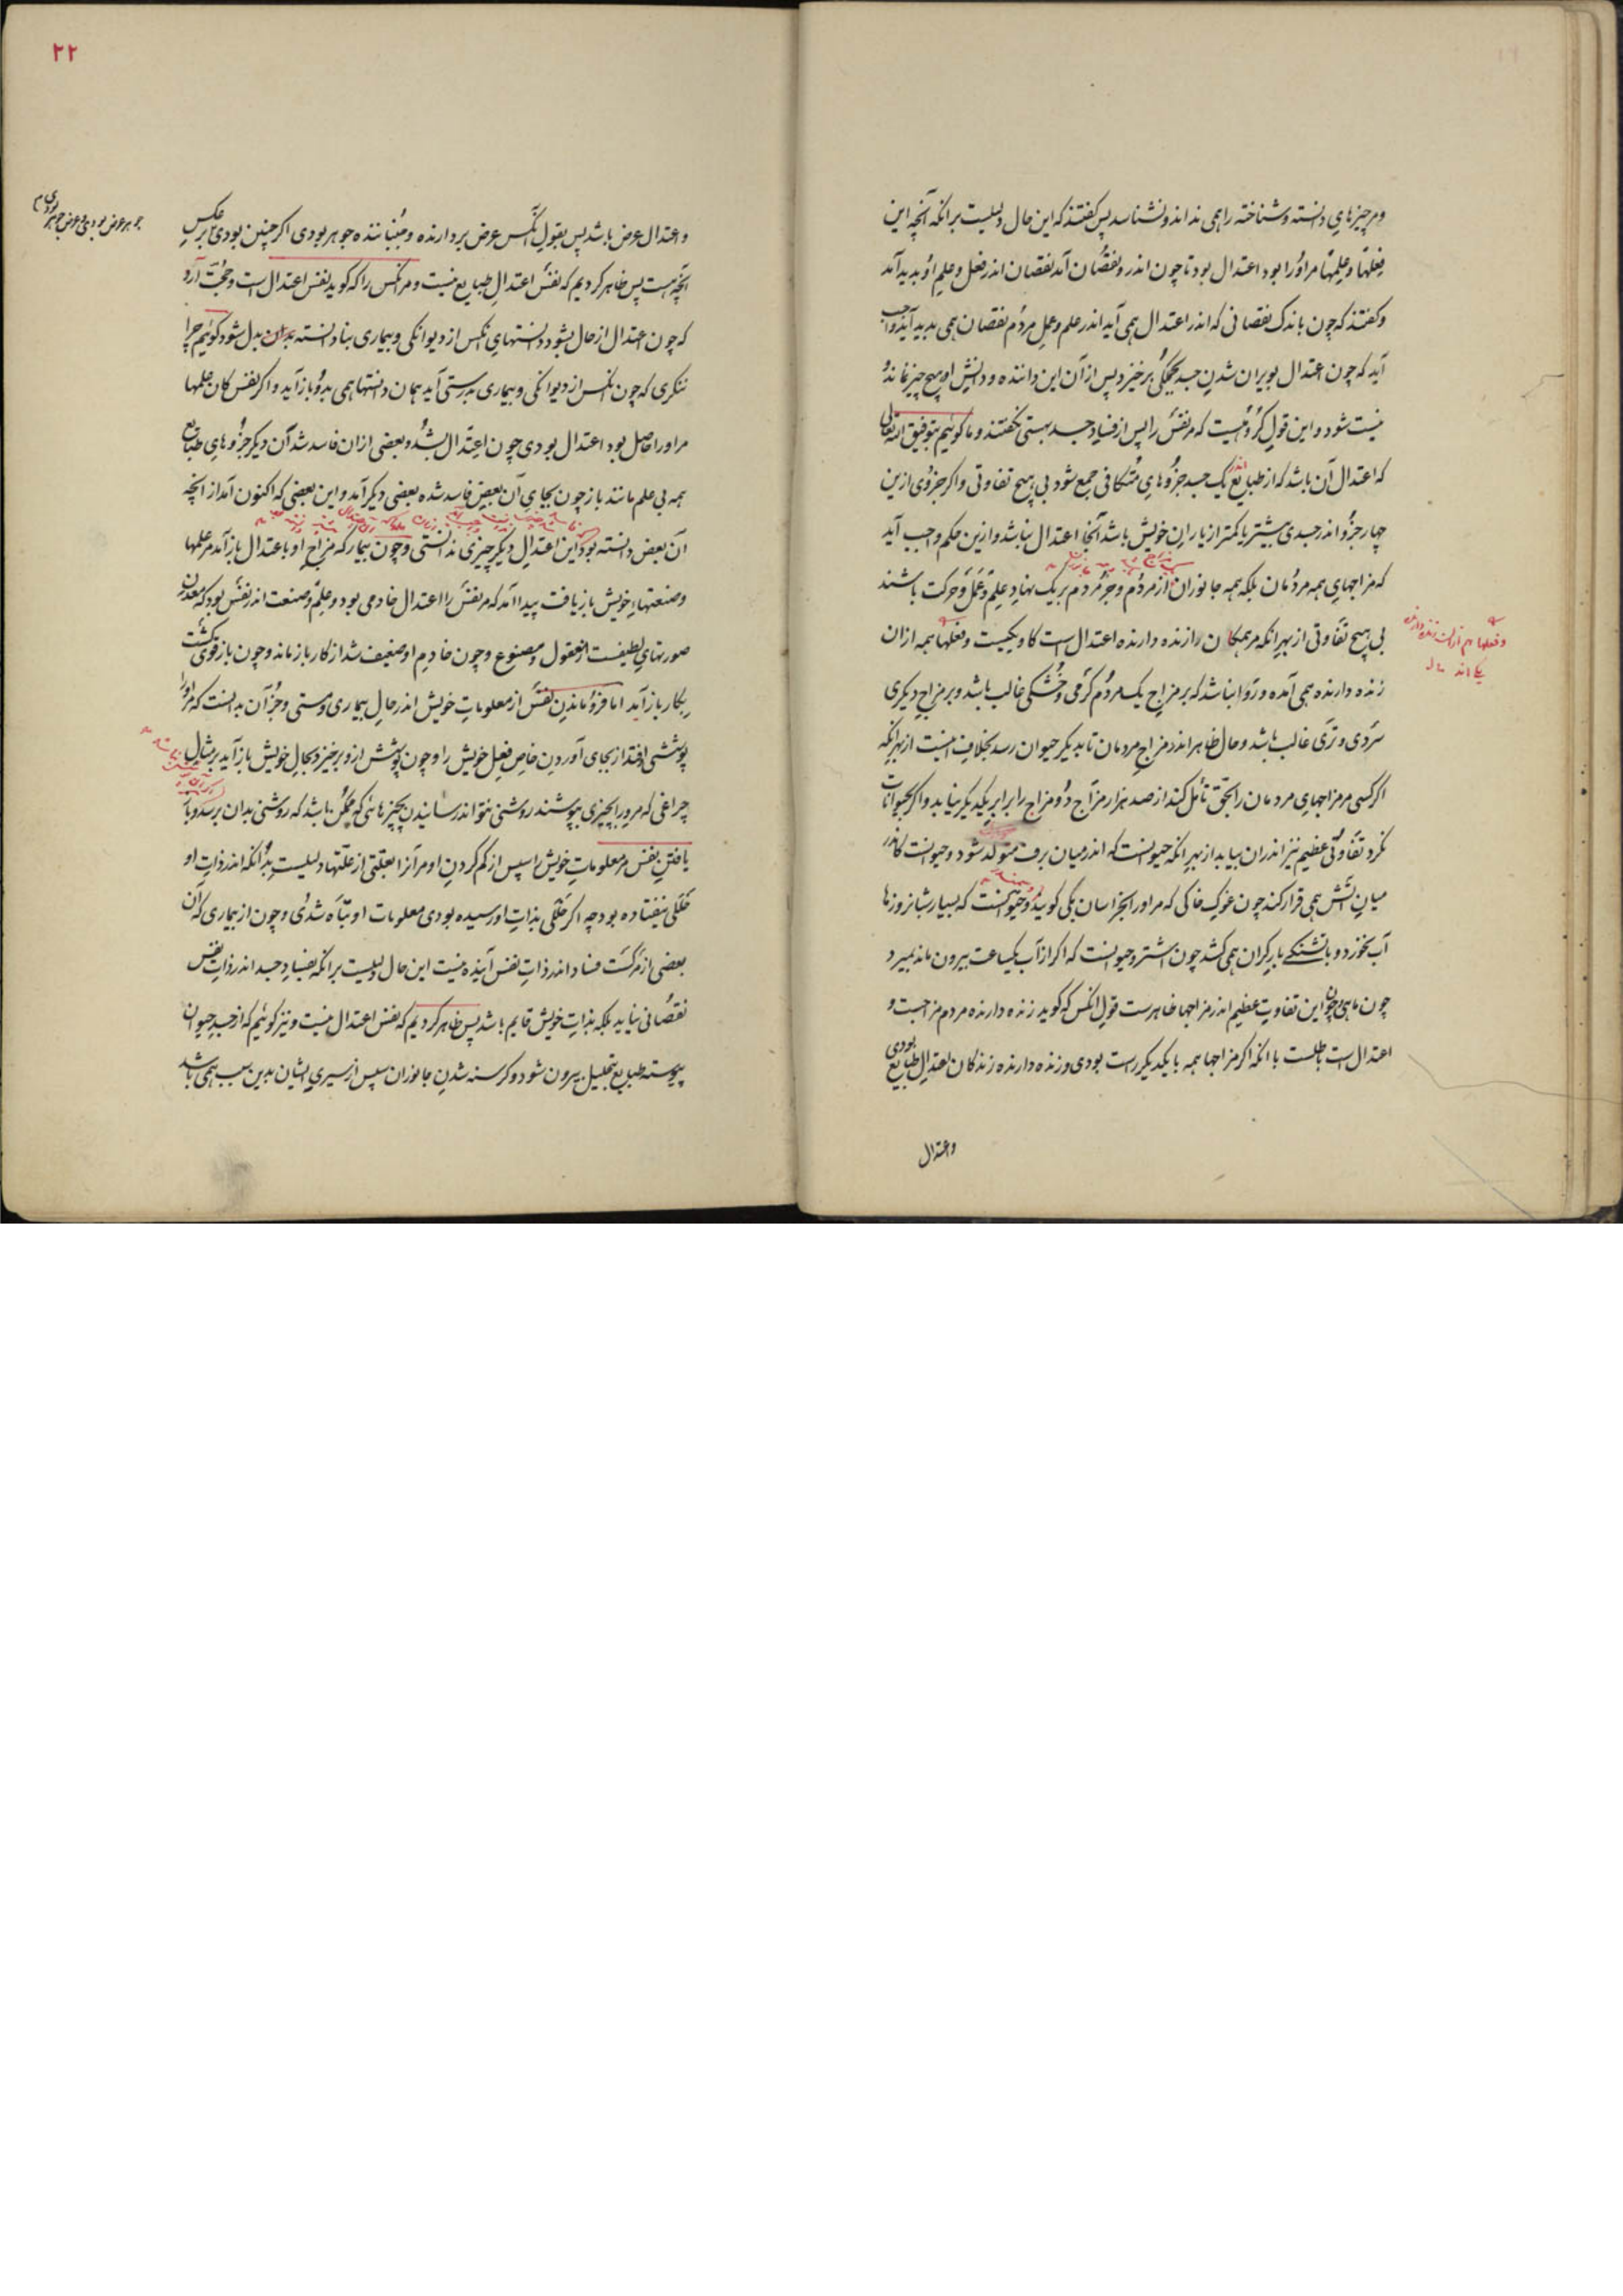 ومر چیزهای دانسته و شناخته را همی نداند و نشناسد پس گفتند که این حال دلیلست بر آنکه آنچه این
فعلها و علمها مر او را بود اعتدال بود تا چون اندر و نقصان آمد نقصان اندر فعل و علم او بدید آمد
و گفتند که چون باندک نقصانی که اندر اعتدال همی آید اندر علم و عمل مردم نقصان همی بدید آید واجب
آید که چون اعتدال بویران شدن جسد بجملگی برخیزد پس از آن این داننده و دانش او هیچ چیز نماند و
نیست شود و این قول گروهیست که مر نفس را پس از فساد جسد هستی نگفتند و ما گوئیم بتوفیق الله تعالی
که اعتدال آن باشد که از طبایع اندر یک جسد جزوهای متکافی جمع شود بی هیچ تفاوتی و اگر جزوی ازین
چهار جزو اندر جسدی بیشتر یا کمتر از یاران خویش باشد آنجا اعتدال نباشد و ازین حکم واجب آید
که مزاجهای همه مردمان بلکه همه جانوران از مردم و جز مردم بر یک نهاد علم و عمل و حرکت باشند
بی هیچ تفاوتی از بهر آنکه مر همگان را زنده دارنده اعتدال است کاو یکیست و فعلها همه ازان
زنده دارنده همی آمده و روا نباشد که بر مزاج یک مردم گرمی و خشکی غالب باشد و بر مزاج دیگری
سردی و تری غالب باشد و حال ظاهر اندر مزاج مردمان تا بدیگر حیوان رسد بخلاف اینست از بهر آنکه
اگر کسی مر مزاجهای مردمان را بحق تأمل کند از صد هزار مزاج دو مزاج را برابر یکدیگر نیابد و اگر بحیوانات
نگرد تفاوتی عظیم نیز اندران بیابد از بهر آنکه حیوانست که اندر میان برف متولد شود و حیوانست کاندر
میان آتش همی قرار کند چون غوک خاکی که مر او را بخراسان بکی گویند و حیوانست که بسیار شبانروزها
آب نخورد و با تشنگی بار گران همی کشد چون اشتر و حیوانست که اگر از آب یکساعت بیرون ماند بمیرد
چون ماهی و چون این تفاوت عظیم اندر مزاجها ظاهرست قول آنکس که گوید زنده دارنده مردم مزاجست و
اعتدال است باطلست با آنکه اگر مزاجها همه با یکدیگر راست بودی و زنده دارنده زندگان اعتدال طبایع بودی
و اعتدال
۲۲
و اعتدال عرض باشد پس بقول آنکس عرض بردارنده و جنباننده جوهر بودی اگر چنین بودی بر عکس
جوهر عرض بودی و عرض جوهر بودی
آنچه هست پس ظاهر کردیم که نفس اعتدال طبایع نیست و مر آنکس را که گوید نفس اعتدال است و حجت آرد
که چون اعتدال از حال بشود دانستهای آنکس از دیوانگی و بیماری بنادانسته بدل شود گوئیم چرا
ننگری که چون آنکس از دیوانگی و بیماری بدرستی آید همان دانستها همی بدو باز آید و اگر نفس کان علمها
مر او را حاصل بود اعتدال بودی چون اعتدال بشد و بعضی ازان فاسد شد آن دیگر جزوهای طبایع
همه بی علم ماندند باز چون بجای آن بعض فاسد شده بعضی دیگر آمد و این بعضی که اکنون آمد از آنچه
آن بعض دانسته بود این اعتدال دیگر چیزی ندانستی و چون بیمار که مزاج او باعتدال باز آمد مر علمها
و صنعتهاء خویش باز یافت پیدا آمد که مر نفس را اعتدال خادمی بود و علم و صنعت اندر نفس بود که معدن
صورتهای لطیفست از معقول و مصنوع و چون خادم او ضعیف شد از کار باز ماند و چون باز قوی گشت
بکار باز آید اما فرو ماندن نفس از معلومات خویش اندر حال بیماری و مستی و جز آن بدانست که مر او را
پوششی اوفتد از بجای آوردن خاص فعل خویش را و چون پوشش ازو برخیزد بحال خویش باز آید بر مثال
چراغی که مرورا بچیزی بپوشند روشنی نتواند رسانیدن بچیزهائی که ممکن باشد که روشنی بدان برسد و باز
یافتن نفس مر معلومات خویش را سپس از گم کردن او مر آنرا بعلتی از علتها دلیلست بر آنکه اندر ذات او
خللی نیفتاده بود چه اگر خللی بذات او رسیده بودی معلومات او تباه شدی و چون از بیماری که آن
بعضی از مرگست فساد اندر ذات نفس آینده نیست این حال دلیلست بر آنکه بفساد جسد اندر ذات نفس
نقصانی نیاید بلکه بذات خویش قایم باشد پس ظاهر کردیم که نفس اعتدال نیست و نیز گوئیم که از جسد حیوان
پیوسته طبایع بتحلیل بیرون شود و گرسنه شدن جانوران سپس از سیری ایشان بدین سبب همی باشد